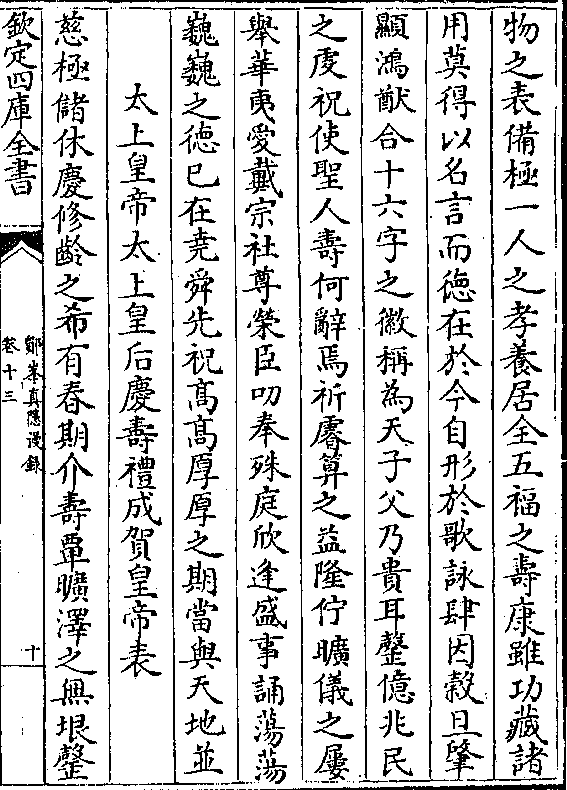 物之表備極一人之孝養居全五福之壽康雖功藏諸
用莫得以名言而徳在於今自形於歌詠肆因穀旦肇
顯鴻猷合十六字之徽稱為天子父乃貴耳罄億兆民
之虔祝使聖人壽何辭焉祈睿算之益隆佇曠儀之屢
舉華夷愛戴宗社尊榮臣叨奉殊庭欣逢盛事誦蕩蕩
巍巍之徳已在堯舜先祝髙髙厚厚之期當與天地並
太上皇帝太上皇后慶壽禮成賀皇帝表
慈極儲休慶修齡之希有春期介壽覃曠澤之無垠罄
欽定四庫全書
鄮峯真隱漫錄
卷十三
十